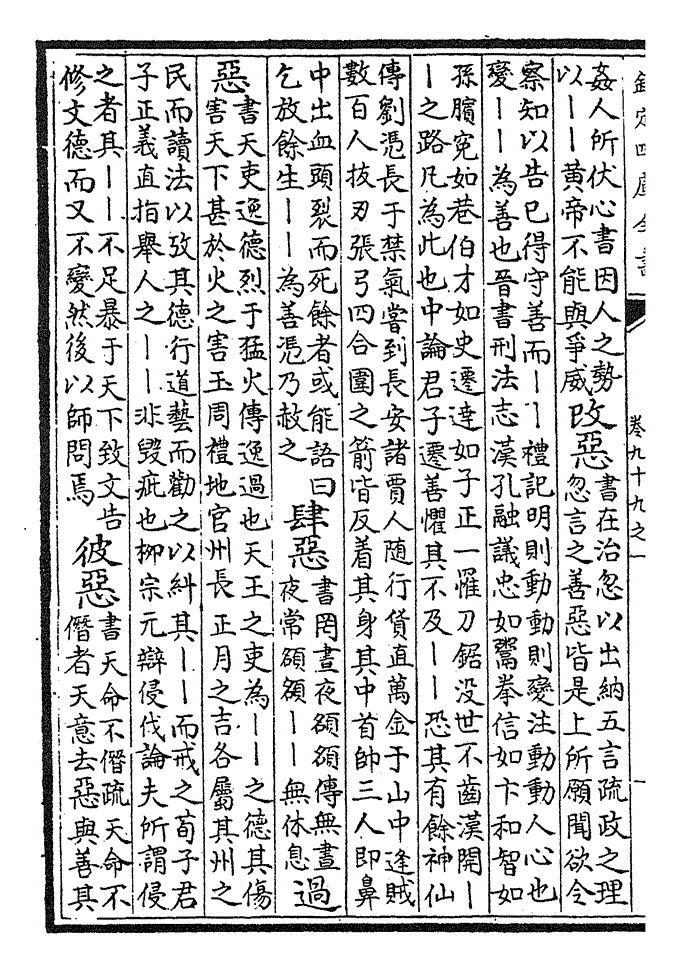 欽定四庫全書 卷九十九之一 一
姦人所伏心書因人之勢
以丨丨黃帝不能與爭威
改惡
書在治忽以出納五言疏政之理
忽言之善惡皆是上所願聞欲令
察知以告已得守善而丨丨禮記明則動動則變注動動人心也
變丨丨為善也晉書刑法志漢孔融議忠如鬻拳信如卞和智如
孫臏冤如巷伯才如史遷達如子正一罹刀鋸没世不齒漢開丨
丨之路凡為此也中論君子遷善懼其不及丨丨恐其有餘神仙
傳劉慿長于禁氣嘗到長安諸賈人隨行貨直萬金于山中逢賊
數百人拔刃張弓四合圍之箭皆反着其身其中首帥三人即鼻
中出血頭裂而死餘者或能語曰
乞放餘生丨丨為善慿乃赦之
肆惡
書罔晝夜頟頟傳無晝
夜常頟頟丨丨無休息
過
惡
書天吏逸德烈于猛火傳逸過也天王之吏為丨丨之德其傷
害天下甚於火之害玉周禮地官州長正月之吉各屬其州之
民而讀法以攷其德行道藝而勸之以糾其丨丨而戒之荀子君
子正義直指舉人之丨丨非毀疵也柳宗元辯侵伐論夫所謂侵
之者其丨丨不足暴于天下致文告
修文德而又不變然後以師問焉
彼惡
書天命不僭疏天命不
僭者天意去惡與善其